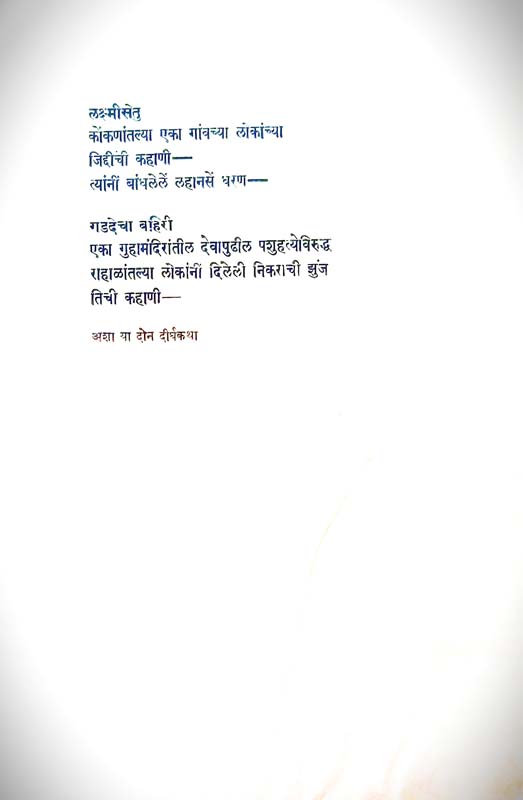 लक्ष्मीसेतु
कोंकणांतल्या एका गांवच्या लोकांच्या
जिद्दीची कहाणी—
त्यांनीं बांधलेलें लहानसें धरण—
गडदेचा बहिरी
एका गुहामंदिरांतील देवापुढील पशुहत्येविरुद्ध
राहाळांतल्या लोकांनीं दिलेली निकराची झुंज
तिची कहाणी—
अशा या दोन दीर्घकथा